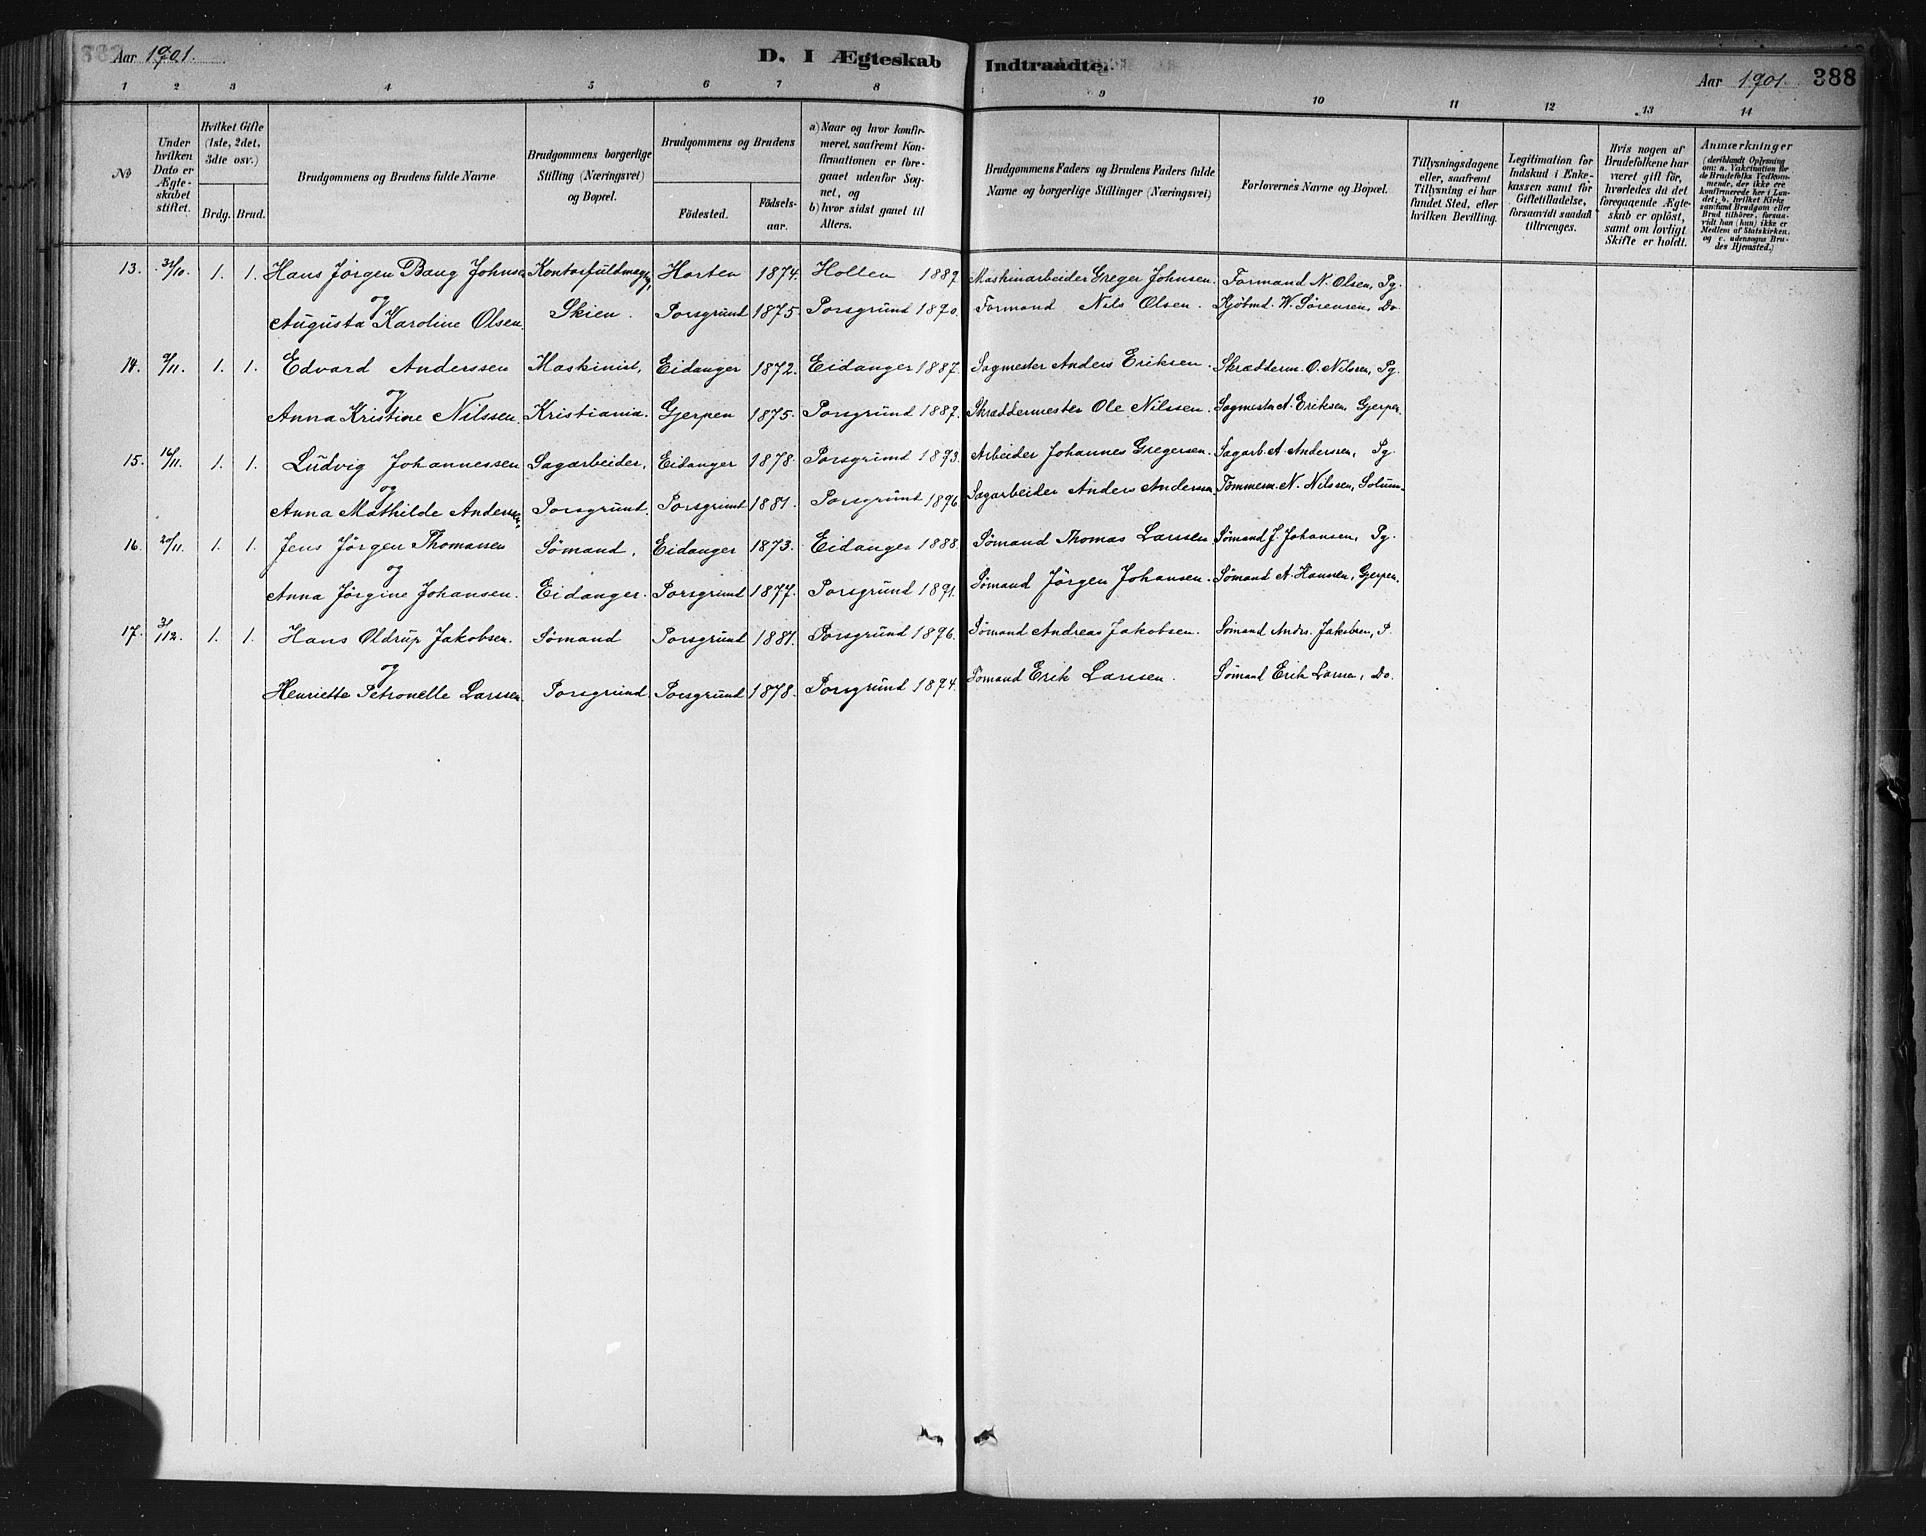 Aar 1901. D. I Ægteskab Indtraadte. Aar 1901. 388
1 2 3 4 5 6 7 8 9 10 11 12 13 14
No
Under hvilken Dato er Ægteskabet stiftet.
Hvilket Gifte (1ste, 2det, 3die osv.)
Brdg. Brud.
Brudgommens og Brudens fulde Navne
Brudgommens borgerlige Stilling (Næringsvei) og Bopæl.
Brudgommens og Brudens
Fødested. Fødselsaar.
a) Naar og hvor konfirmeret, saafremt Konfirmationen er foregaaet udenfor Sognet, og
b) hvor sidst gaaet til Alters.
Brudgommens Faders og Brudens Faders fulde Navne og borgerlige Stillinger (Næringsvei)
Forlovernes Navne og Bopæl.
Tillysningsdagene eller, saafremt Tillysning ei har fundet Sted, efter hvilken Bevilling.
Legitimation for Indskud i Enkekassen samt for Giftetilladelse, forsaavidt saadan tiltrænges.
Hvis nogen af Brudefolkene har været gift før, hvorledes da det foregaaende Ægteskab er opløst, samt om lovligt Skifte er holdt.
Anmærkninger
(deriblandt Oplysning om: a. Vakcination for de Brudefolks Vedkommende, der ikke ere konfirmerede her i Landet; b. hvilket Kirkesamfund Brudgom eller Brud tilhører, forsaavidt han (hun) ikke er Medlem af Statskirken, og c. udensogns Brudes Hjemsted.)
13. 31/10. 1. 1. Hans Jørgen Bang Johnsen Kontorfuldmægtig, Horten 1874. Hollen 1889. Maskinarbeider Greger Johnsen. Formand N. Olsen, Pg.
og
Augusta Karoline Olsen. Skien. Porsgrund 1875. Porsgrund 1890. Formand Nils Olsen. Kjøbmd. W. Sørensen, Do
14. 9/11. 1. 1. Edvard Anderssen Maskinist, Eidanger 1872. Eidanger 1887. Sagmester Anders Eriksen. Skrædderm. O. Nilssen, Pg.
og
Anna Kristine Nilssen. Kristiania. Gjerpen 1875. Porsgrund 1889. Skræddermester Ole Nilssen. Sagmester A. Eriksen, Gjerpen.
15. 16/11. 1. 1. Ludvig Johannessen Sagarbeider, Eidanger 1878. Porsgrund 1893. Arbeider Johannes Gregersen. Sagarb. A. Anderssen, Pg.
og
Anna Mathilde Anderssen. Porsgrund. Porsgrund 1881. Porsgrund 1896 Sagarbeider Anders Anderssen Tømmerm. N. Nilssen, Solum.
16. 20/11. 1. 1. Jens Jörgen Thomassen Sømand, Eidanger 1873. Eidanger 1888. Sømand Thomas Larssen. Sømand J. Johansen, Pg.
og
Anna Jörgine Johansen. Eidanger. Porsgrund 1877. Porsgrund 1891. Sømand Jörgen Johansen. Sømand A. Hansen, Gjerpen.
17. 31/12. 1. 1. Hans Oldrup Jakobsen. Sømand Porsgrund 1881. Porsgrund 1896. Sømand Andreas Jakobsen. Sømand Andrs. Jakobsen, P.
og
Henriette Petronelle Larssen. Porsgrund. Porsgrund 1878. Porsgrund 1894. Sømand Erik Larssen. Sømand Erik Larsen, Do.